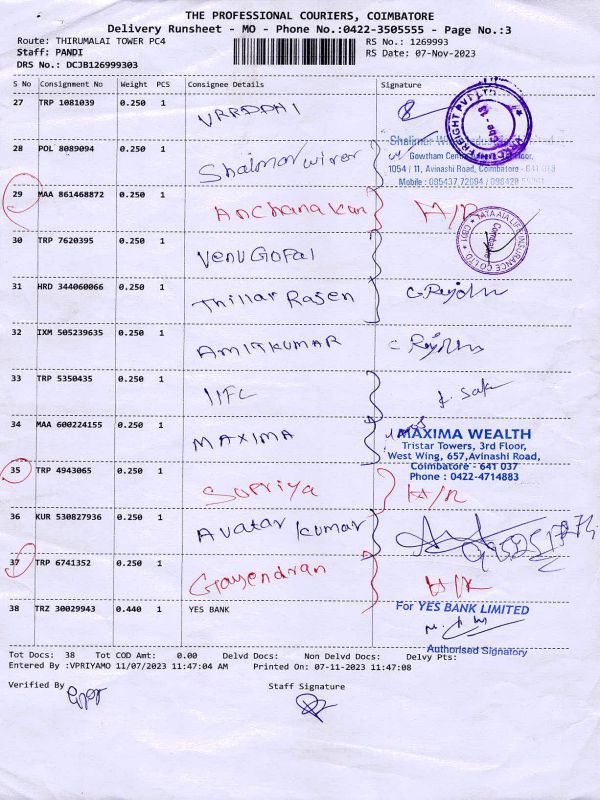 THE PROFESSIONAL COURIERS, COIMBATORE
Delivery Runsheet - MO - Phone No.:0422-3505555 - Page No.:3
Route: THIRUMALAI TOWER PC4 RS No.: 1269993
Staff: PANDI RS Date: 07-Nov-2023
DRS No.: DCJB126999303
S No Consignment No Weight PCS Consignee Details Signature
27 TRP 1081039 0.250 1
28 POL 8089094 0.250 1 Shalmar wirer
Gowtham
1054 / 11, Avinashi Road, Coimbatore - 641 018
29 MAA 861468872 0.250 1 H/R
30 TRP 7620395 0.250 1 VENUGOPAL TATA AIA LIFE INSURANCE CO LTD
31 HRD 344060066 0.250 1 Thillai Rasen
32 IXM 505239635 0.250 1 AMITKUMAR
33 TRP 5350435 0.250 1 IIFL
34 MAA 600224155 0.250 1 MAXIMA
MAXIMA WEALTH
Tristar Towers, 3rd Floor,
West Wing, 657, Avinashi Road,
Coimbatore - 641 037
Phone : 0422-4714883
35 TRP 4943065 0.250 1 Supriya H/R
36 KUR 530827936 0.250 1 Avatar kumar
37 TRP 6741352 0.250 1 Gayendran H/R
38 TRZ 30029943 0.440 1 YES BANK
For YES BANK LIMITED
Authorised Signatory
Tot Docs: 38 Tot COD Amt: 0.00 Delvd Docs: Non Delvd Docs: Delvy Pts:
Entered By :VPRIYAMO 11/07/2023 11:47:04 AM Printed On: 07-11-2023 11:47:08
Verified By Staff Signature